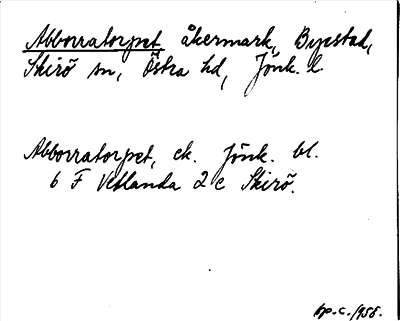 Abborratorpet åkermark, Byestad,
Skirö sn, Östra hd, Jönk. l.
Abborratorpet, ek. Jönk. bl.
6 F Vetlanda 2 c Skirö.
1958.